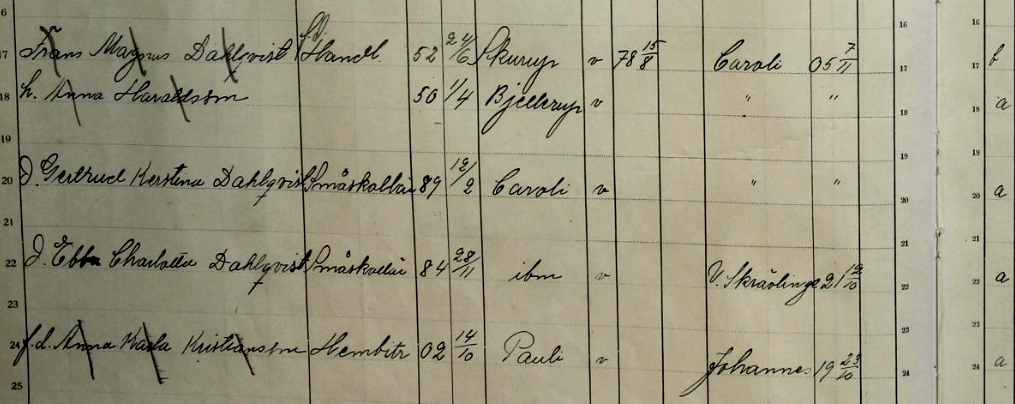 16 16
f.d.
17 Frans Magnus Dahlqvist Handl. 52 24/6 Skurup v 78 15/8 Caroli 05 7/11 17 17 f
18 h. Anna Haraldsson 50 1/4 Bjellerup v " " 18 18 a
19 19 19
20 d. Gertrud Kerstina Dahlqvist Småskollär 89 12/2 Caroli v " " 20 20 a
21 21 21
22 d. Ebba Charlotta Dahlqvist Småskollär 84 28/11 ibm v V. Skräflinge 21 12/10 22 22 a
23 23 23
24 f.d. Anna Karla Kristiansson Hembitr 02 14/10 Pauli v Johannes 19 23/10 24 24 a
25